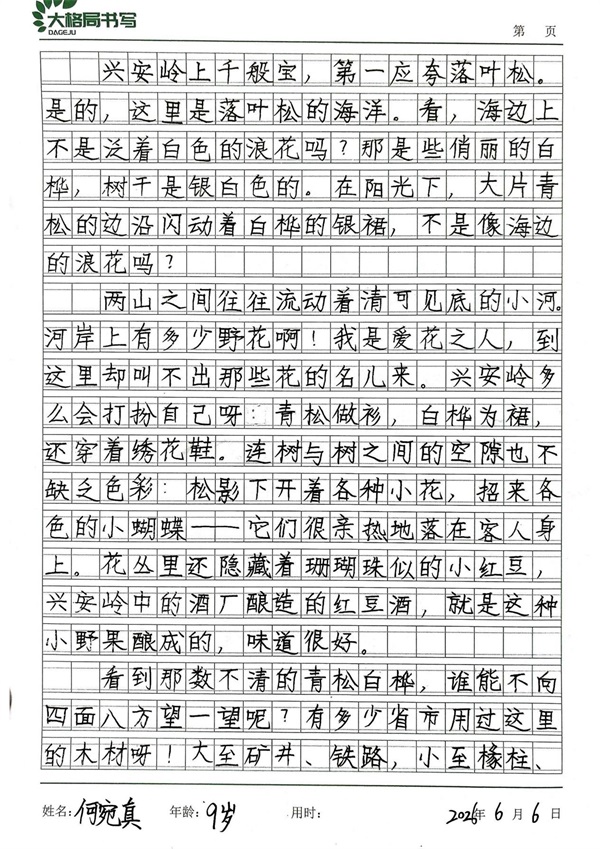 大格局书写
DAGEJU
第 页
兴安岭上千般宝，第一应夸落叶松。
是的，这里是落叶松的海洋。看，海边上
不是泛着白色的浪花吗？那是些俏丽的白
桦，树干是银白色的。在阳光下，大片青
松的边沿闪动着白桦的银裙，不是像海边
的浪花吗？
两山之间往往流动着清可见底的小河。
河岸上有多少野花啊！我是爱花之人，到
这里却叫不出那些花的名儿来。兴安岭多
么会打扮自己呀：青松做衫，白桦为裙，
还穿着绣花鞋。连树与树之间的空隙也不
缺乏色彩：松影下开着各种小花，招来各
色的小蝴蝶——它们很亲热地落在客人身
上。花丛里还隐藏着珊瑚珠似的小红豆，
兴安岭中的酒厂酿造的红豆酒，就是这种
小野果酿成的，味道很好。
看到那数不清的青松白桦，谁能不向
四面八方望一望呢？有多少省市用过这里
的木材呀！大至矿井、铁路，小至椽柱、
姓名：何宛真 年龄：9岁 用时： 2026年6月6日